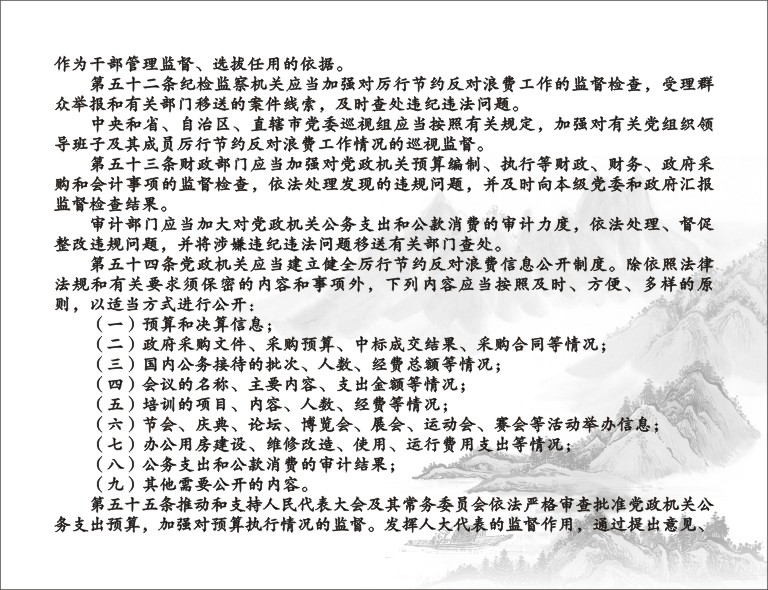 作为干部管理监督、选拔任用的依据。
第五十二条纪检监察机关应当加强对厉行节约反对浪费工作的监督检查，受理群
众举报和有关部门移送的案件线索，及时查处违纪违法问题。
中央和省、自治区、直辖市党委巡视组应当按照有关规定，加强对有关党组织领
导班子及其成员厉行节约反对浪费工作情况的巡视监督。
第五十三条财政部门应当加强对党政机关预算编制、执行等财政、财务、政府采
购和会计事项的监督检查，依法处理发现的违规问题，并及时向本级党委和政府汇报
监督检查结果。
审计部门应当加大对党政机关公务支出和公款消费的审计力度，依法处理、督促
整改违规问题，并将涉嫌违纪违法问题移送有关部门查处。
第五十四条党政机关应当建立健全厉行节约反对浪费信息公开制度。除依照法律
法规和有关要求须保密的内容和事项外，下列内容应当按照及时、方便、多样的原
则，以适当方式进行公开：
（一）预算和决算信息；
（二）政府采购文件、采购预算、中标成交结果、采购合同等情况；
（三）国内公务接待的批次、人数、经费总额等情况；
（四）会议的名称、主要内容、支出金额等情况；
（五）培训的项目、内容、人数、经费等情况；
（六）节会、庆典、论坛、博览会、展会、运动会、赛会等活动举办信息；
（七）办公用房建设、维修改造、使用、运行费用支出等情况；
（八）公务支出和公款消费的审计结果；
（九）其他需要公开的内容。
第五十五条推动和支持人民代表大会及其常务委员会依法严格审查批准党政机关公
务支出预算，加强对预算执行情况的监督。发挥人大代表的监督作用，通过提出意见、